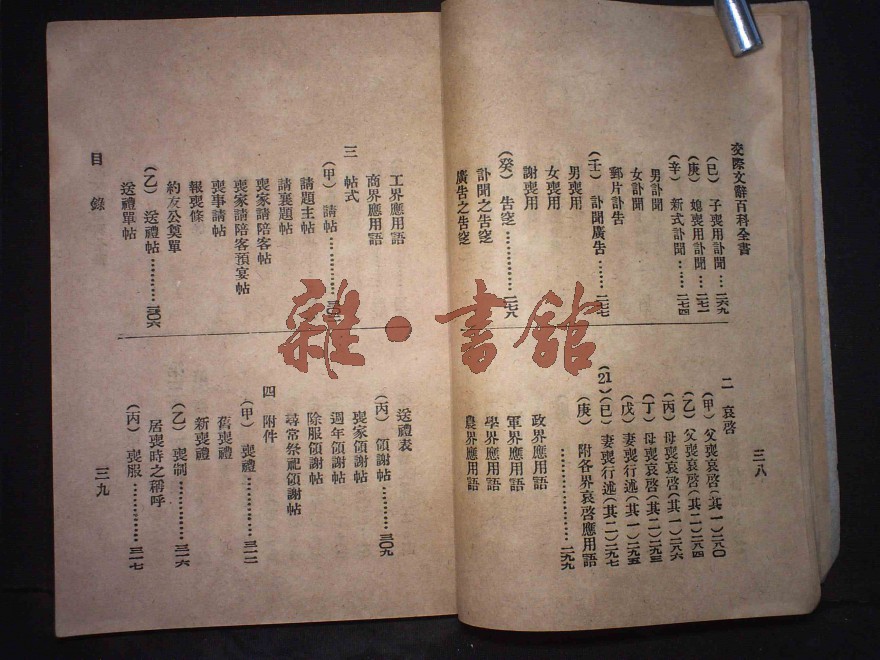 交際文辭百科全書
(巳) 子喪用訃聞……二六九
(庚) 媳喪用訃聞……二七一
(辛) 新式訃聞……二七四
男訃聞
女訃聞
郵片訃告
(壬) 訃聞廣告……二七七
男喪用
女喪用
謝喪用
(癸) 告窆…………二七八
訃聞之告窆
廣告之告窆
三八
二 哀啓
(甲) 父喪哀啓(其一)二八〇
(乙) 父喪哀啓(其二)二八四
(丙) 母喪哀啓(其一)二八六
(丁) 母喪哀啓(其二)二九三
(戊) 妻喪行述(其一)二九五
(21)(巳) 妻喪行述(其二)二九七
(庚) 附各界哀啓應用語
…………………二九九
政界應用語
軍界應用語
學界應用語
農界應用語
工界應用語
商界應用語
三 帖式
(甲) 請帖…………
請題主帖
請襄題帖
喪家請陪客帖
喪家請陪客預宴帖
喪事請帖
報喪條
約友公奠單
(乙) 送禮帖…………三〇六
送禮單帖
目錄
送禮表
(丙) 領謝帖…………三〇九
喪家領謝帖
週年領謝帖
除服領謝帖
尋常祭祀領謝帖
四 附件
(甲) 喪禮…………三一二
舊喪禮
新喪禮
(乙) 喪制…………三一六
居喪時之稱呼
(丙) 喪服…………三一七
三九
雜·書館